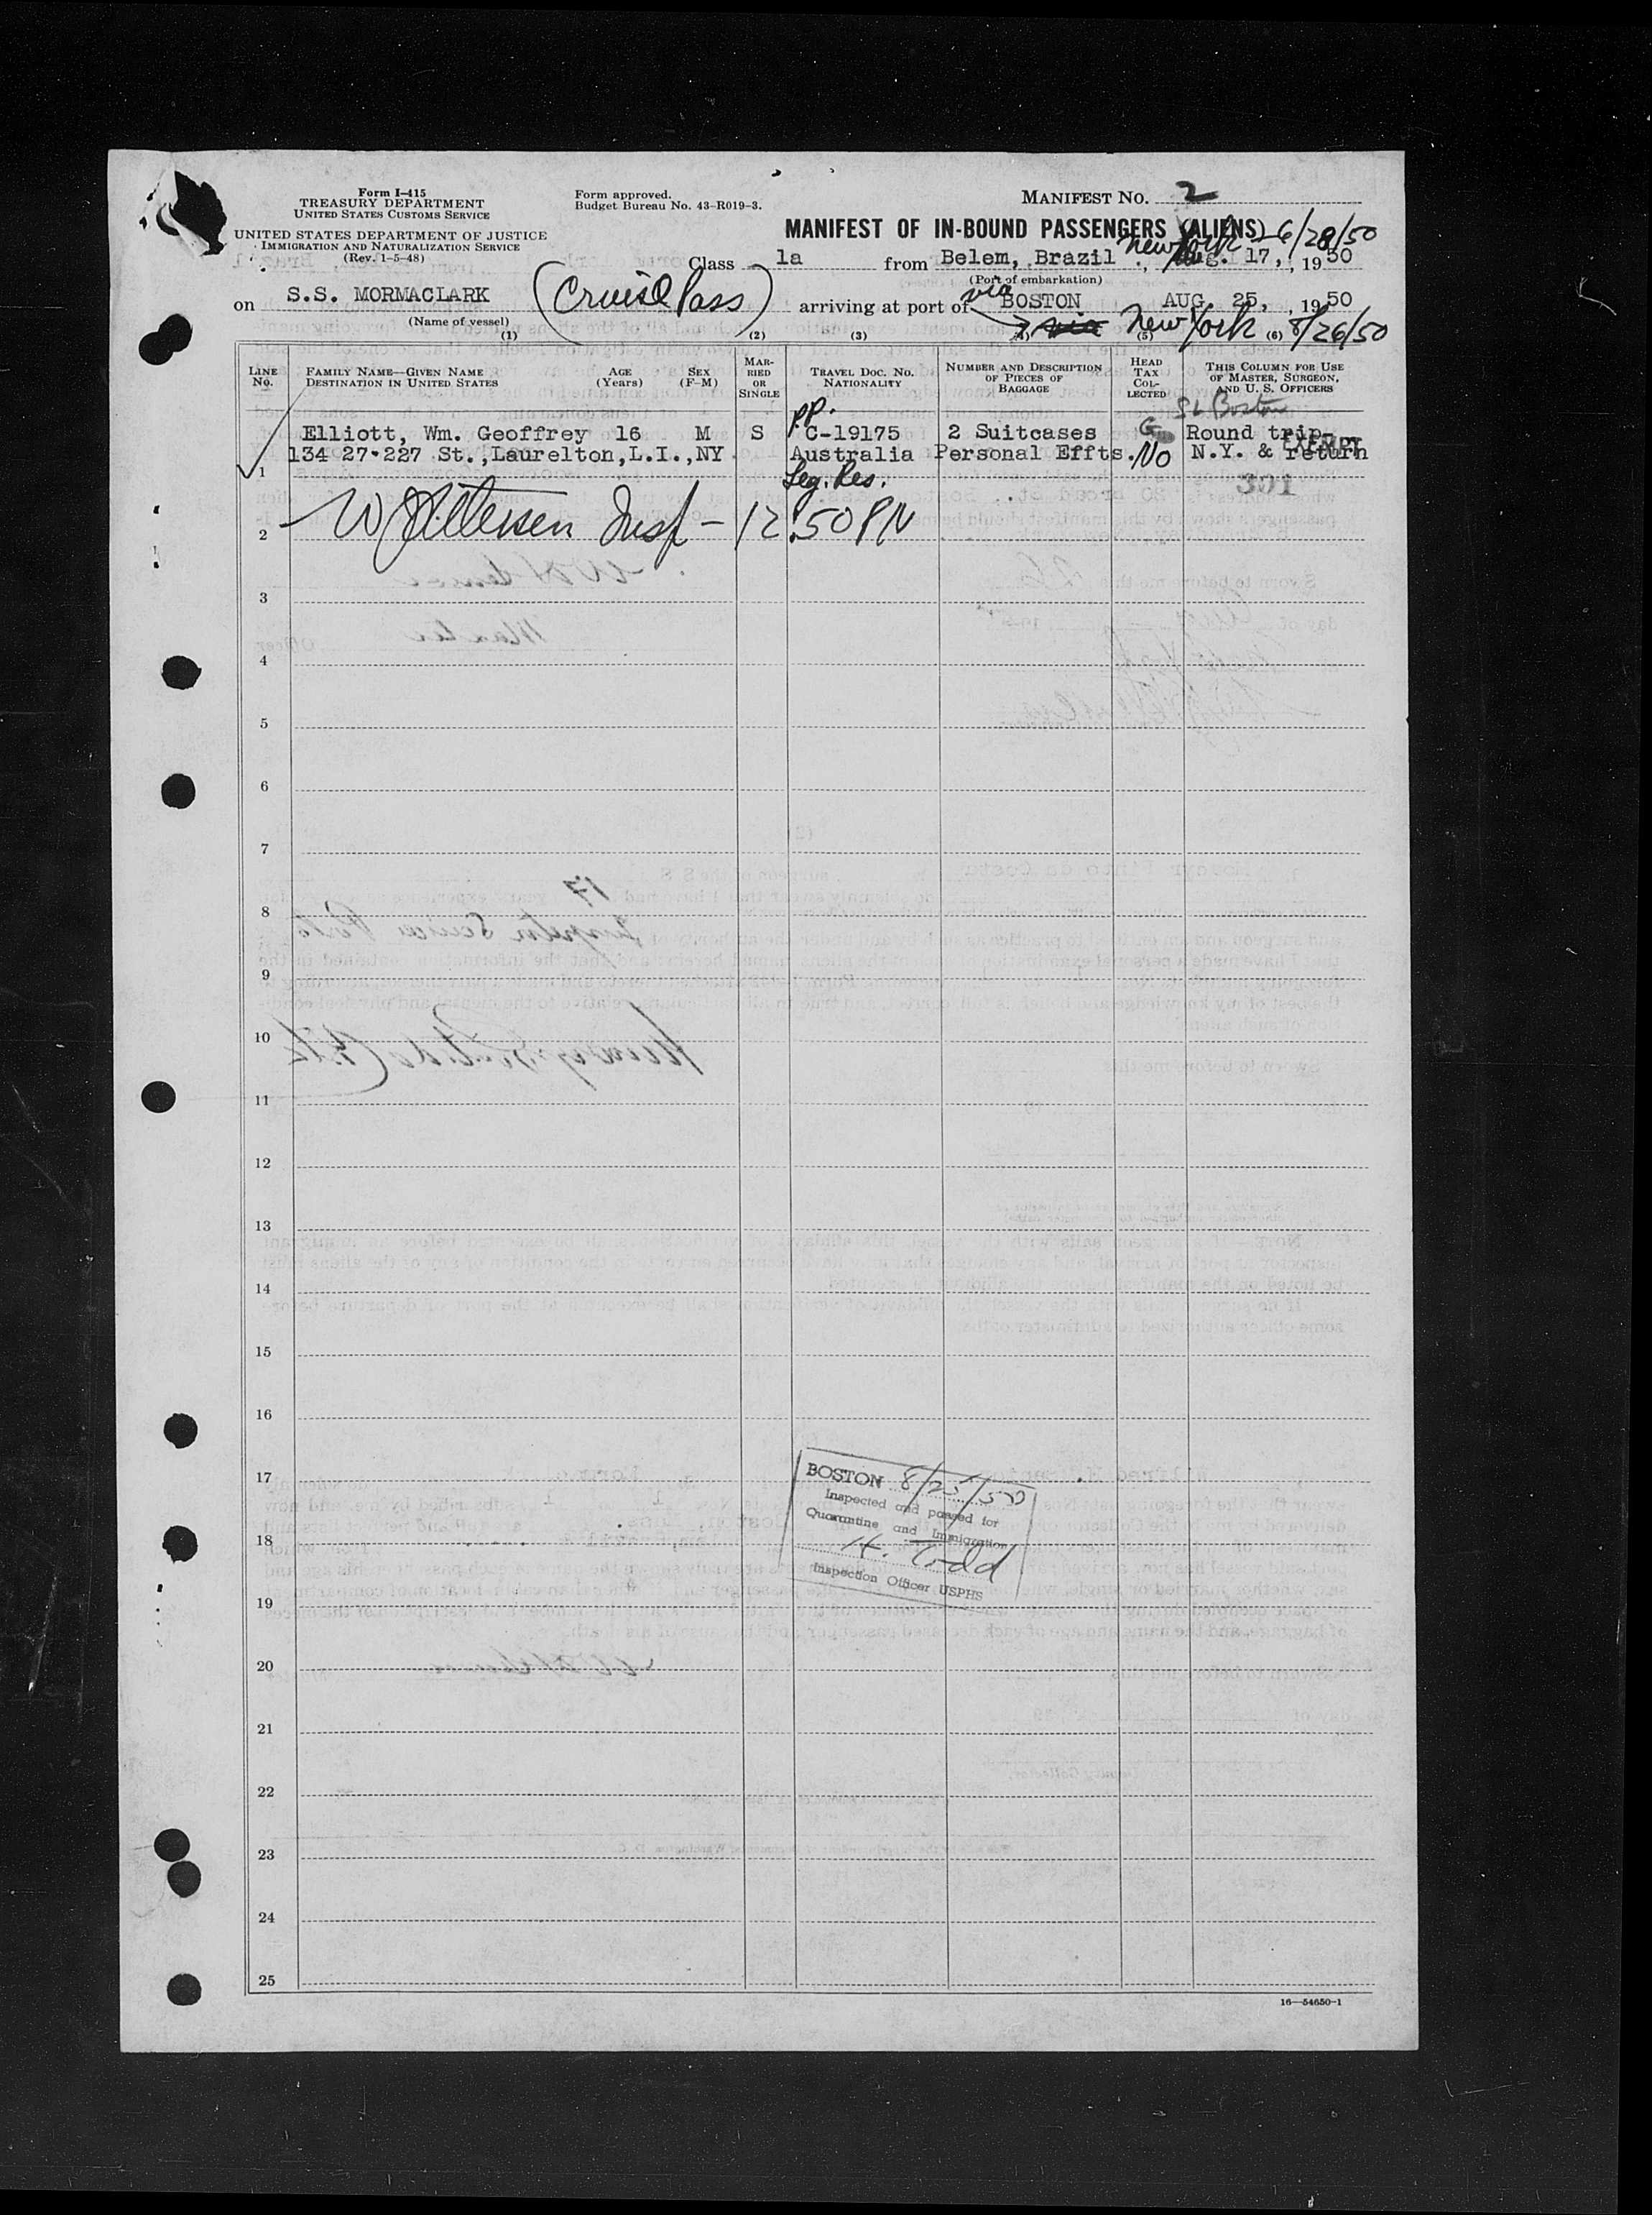 Form I-415
TREASURY DEPARTMENT
UNITED STATES CUSTOMS SERVICE
UNITED STATES DEPARTMENT OF JUSTICE
IMMIGRATION AND NATURALIZATION SERVICE
(Rev. 1-5-48)
Form approved.
Budget Bureau No. 43-R019-3.
MANIFEST NO. 2
MANIFEST OF IN-BOUND PASSENGERS (ALIENS)
New York 6/28/50
Class 1a from Belem, Brazil, Aug. 17, 1950
(Port of embarkation)
on S.S. MORMACLARK (Cruise Pass) arriving at port of via BOSTON AUG. 25, 1950
(Name of vessel)
via New York 8/26/50
(1) (2) (3) (4) (5) (6)
LINE No.
FAMILY NAME—GIVEN NAME
DESTINATION IN UNITED STATES
AGE (Years)
SEX (F-M)
MARRIED OR SINGLE
TRAVEL DOC. NO.
NATIONALITY
NUMBER AND DESCRIPTION OF PIECES OF BAGGAGE
HEAD TAX COLLECTED
THIS COLUMN FOR USE OF MASTER, SURGEON, AND U. S. OFFICERS
P.P. Boston
Elliott, Wm. Geoffrey 16 M S C-19175 2 Suitcases Round trip
134 27-227 St.,Laurelton,L.I.,NY. Australia Personal Effts. No N.Y. & return
EXEMPT
1 Leg. Res. 301
2 Insp - 12:50 PM
3
4
5
6
7
8
9
10
11
12
13
14
15
16
17
18
19
20
21
22
23
24
25
BOSTON 8/25/50
Inspected and passed for
Quarantine and Immigration
H. Todd
Inspection Officer USPHS
16—54650-1